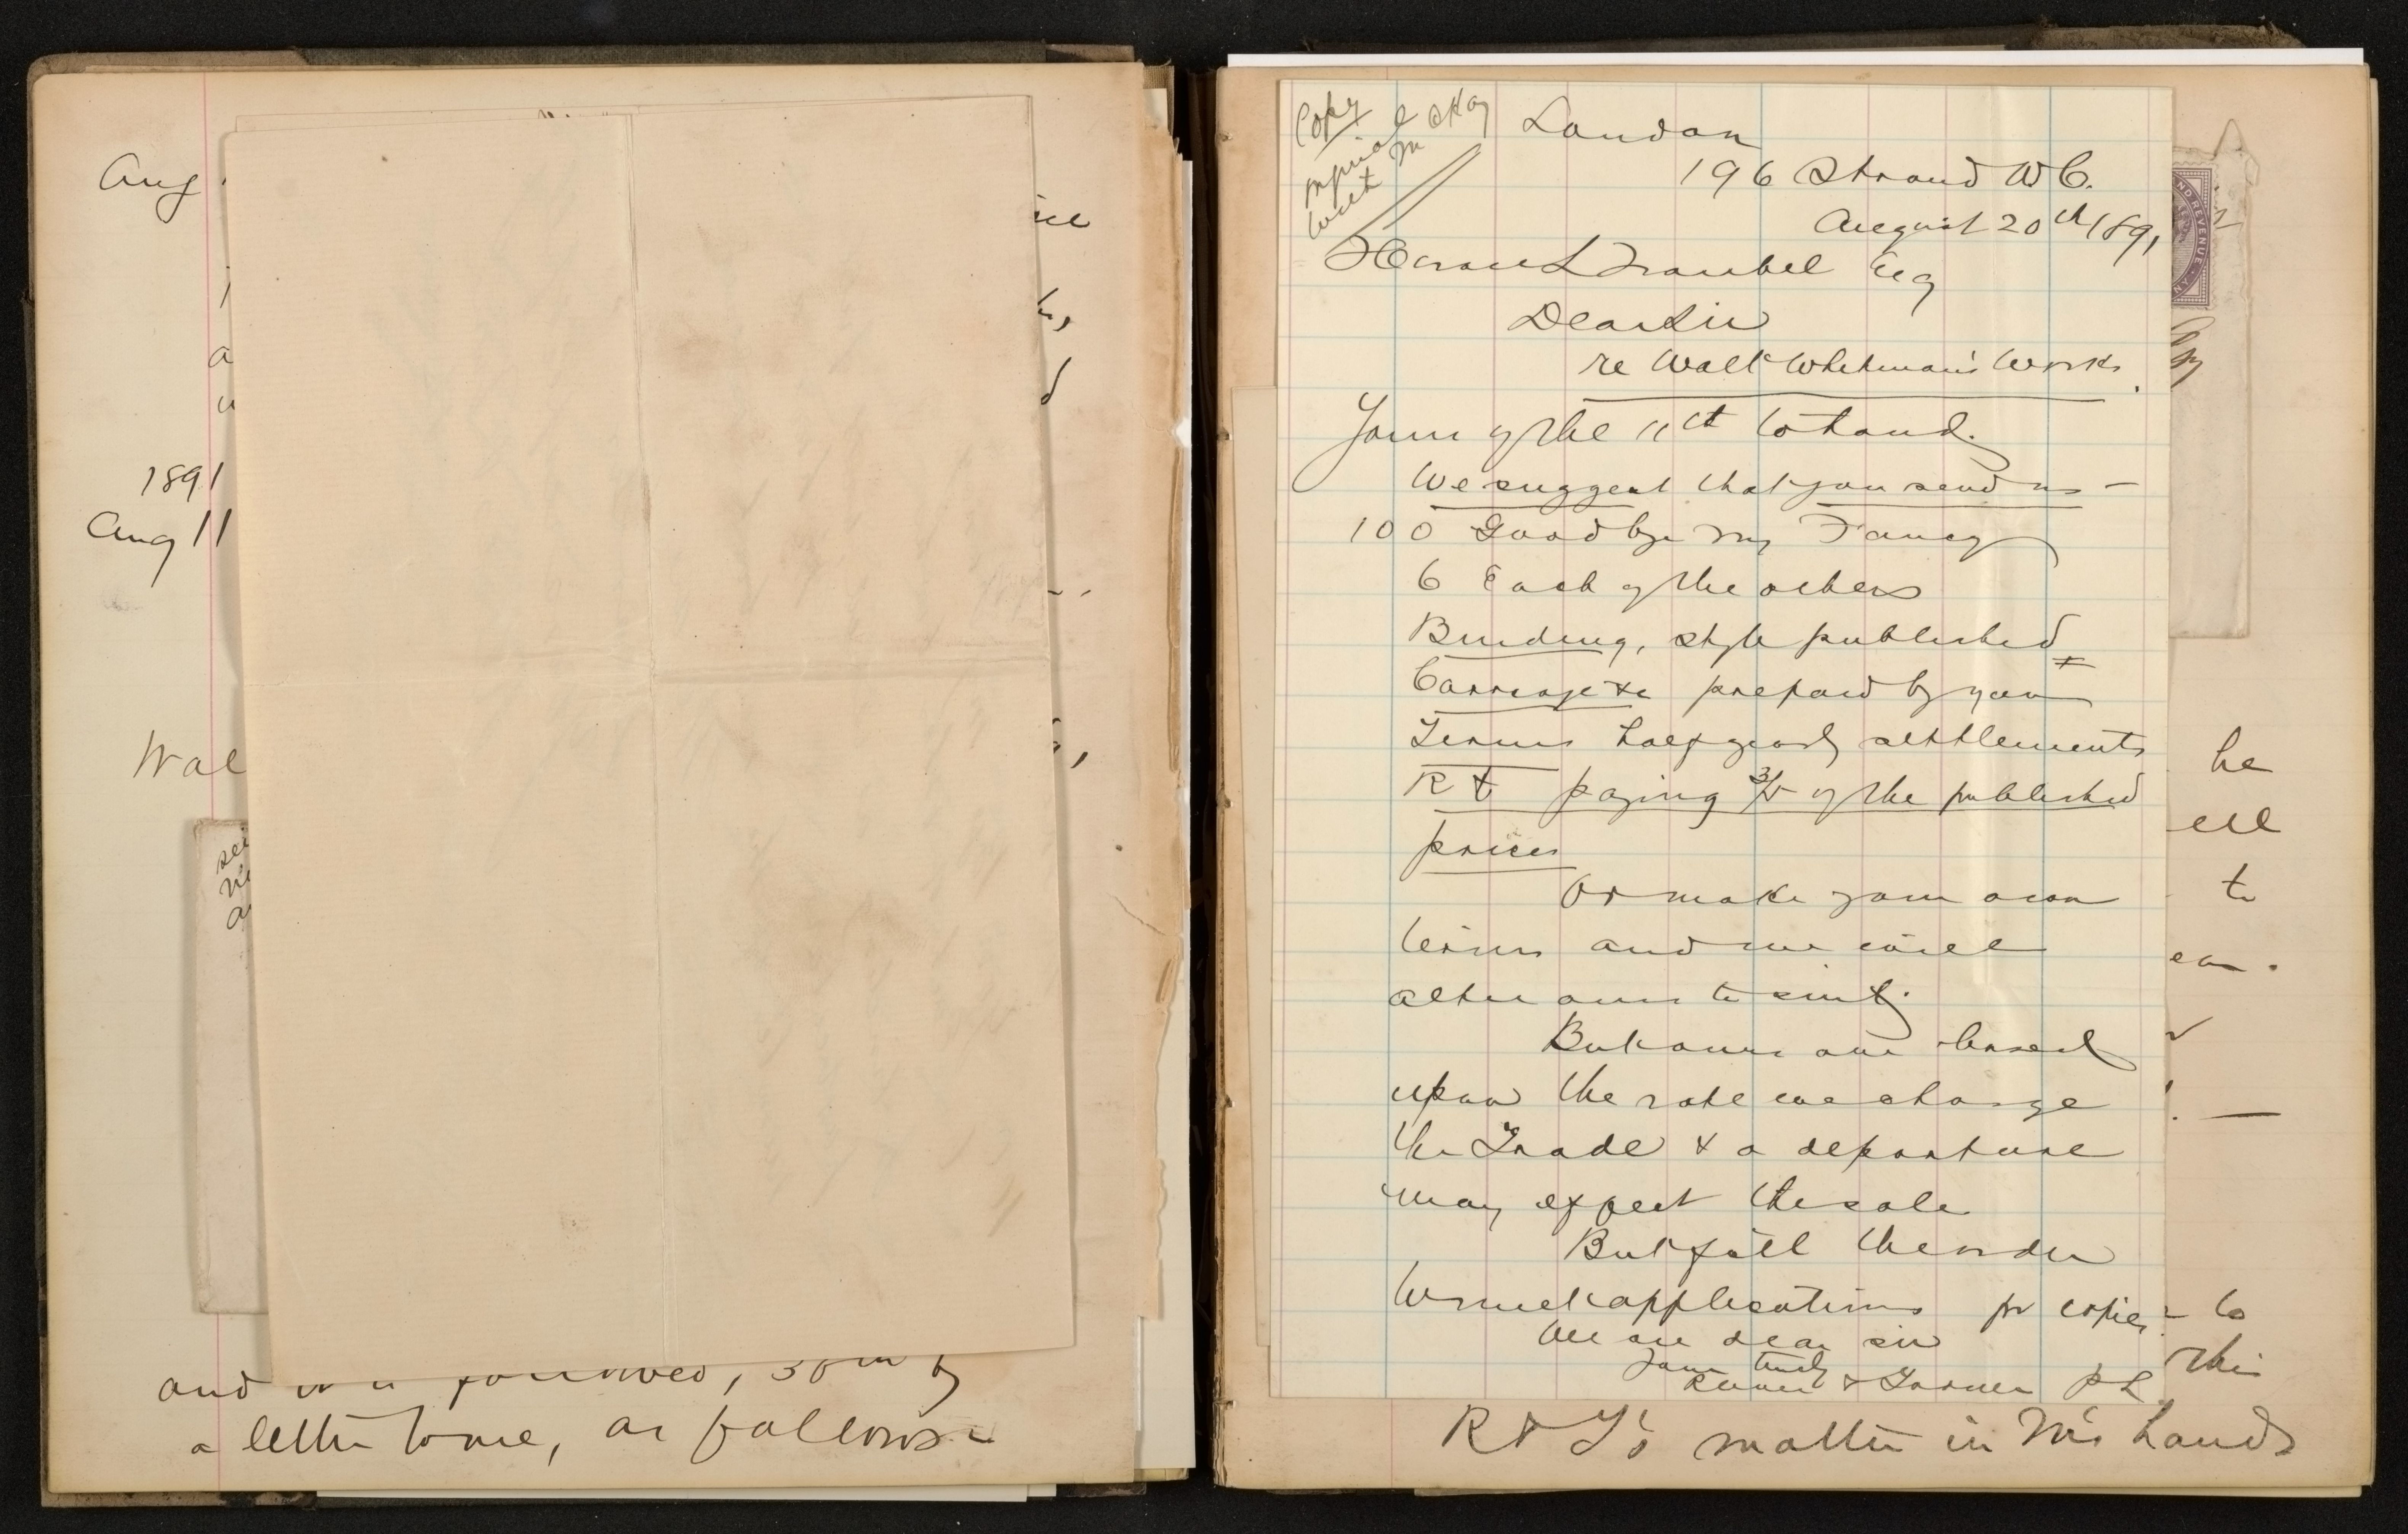 Aug
1891
Aug 11
Wal
and it is followed, 30th by
a letter to me, as follows:
Copy
London
196 Strand W C.
August 20th 1891
Horace L Traubel Esq
Dear Sir
re Walt Whitman's Works.
Yours of the 11th to hand.
We suggest that you send us —
100 Good bye my Fancy
6 Each of the others
Binding, style published
Carriage &c prepaid by you
Terms half yearly settlements
R & T paying 3/5 of the published
prices
Or make your own
terms and we will
alter ours to suit.
But ours are based
upon the rate we charge
the Trade & a departure
may effect the sale
But fill the order
We are dear sir
Yours truly
& Turner
he
ell
to
to
this
R & T's matter in W's hands